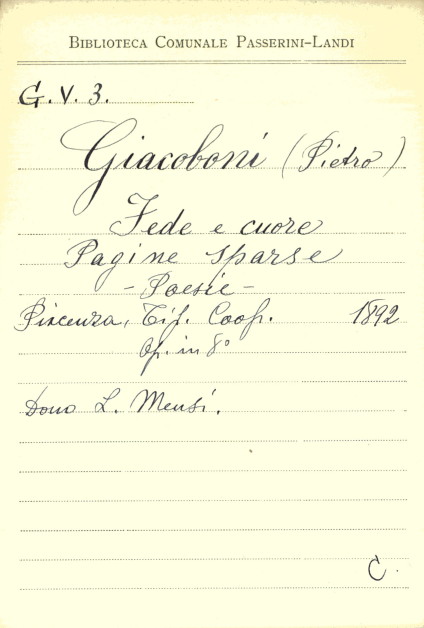 BIBLIOTECA COMUNALE PASSERINI-LANDI
G. V. 3.
Giacoboni (Pietro)
Fede e cuore
Pagine sparse
- Poesie -
Piacenza, Tip. Coop. 1892
Op. in 8°
Dono L. Mensi.
C.